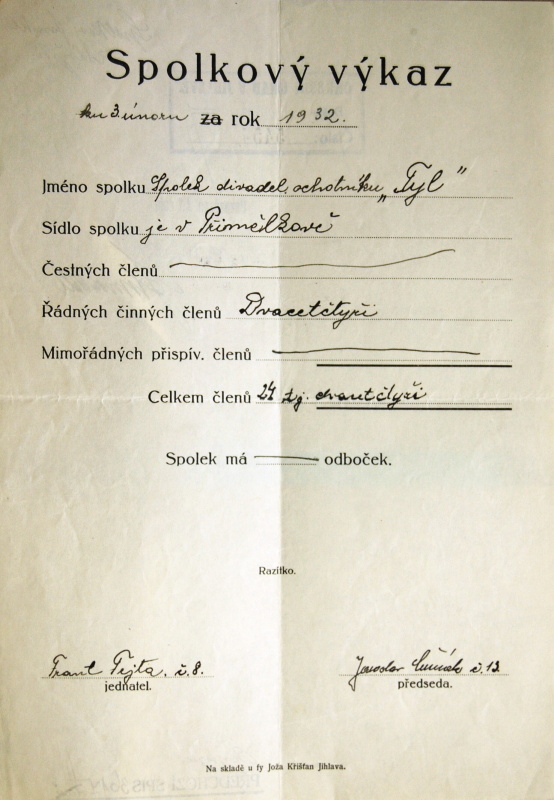 Spolkový výkaz
ku 3. únoru za rok 1932.
Jméno spolku Spolek divadel. ochotníku „Tyl"
Sídlo spolku je v Přímělkově
Čestných členů
Řádných činných členů Dvacetčtyři
Mimořádných přispív. členů
Celkem členů 24 tj. dvacetčtyři
Spolek má odboček.
Razítko.
Frant Tejta. č. 8.
jednatel.
Jaroslav č. 13.
předseda.
Na skladě u fy Joža Křišťan Jihlava.